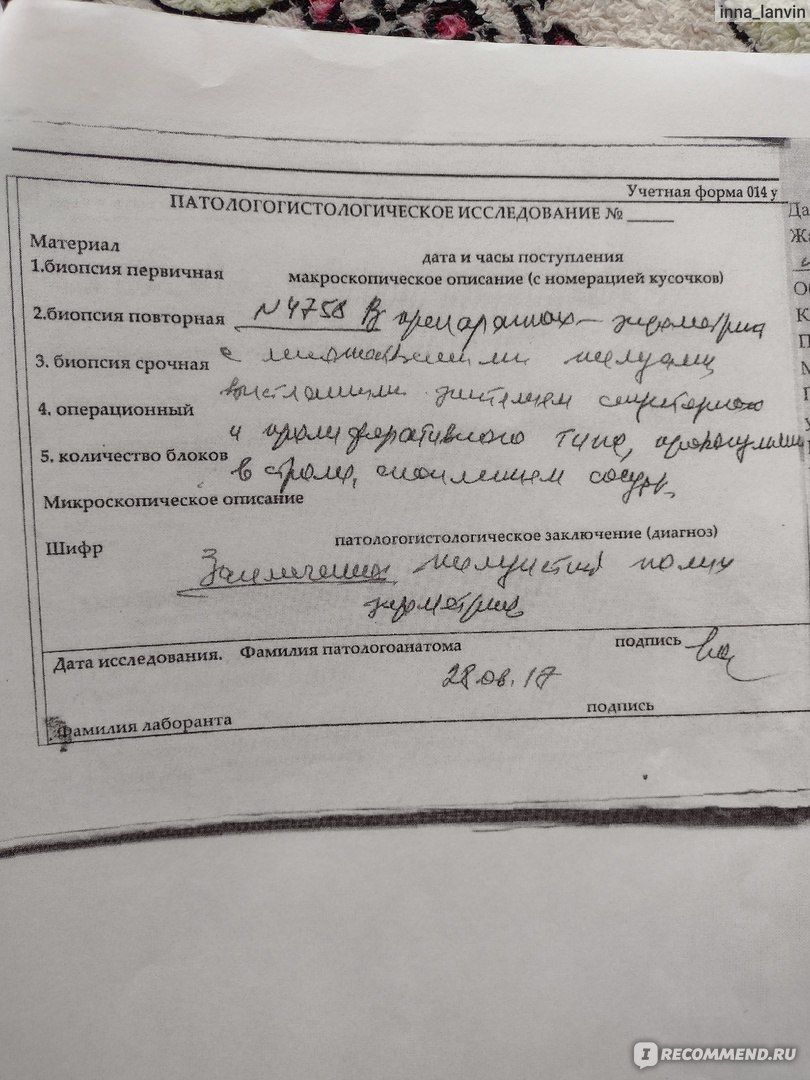 inna_lanvin
Учетная форма 014 у
ПАТОЛОГОГИСТОЛОГИЧЕСКОЕ ИССЛЕДОВАНИЕ №
Материал
дата и часы поступления
1.биопсия первичная
макроскопическое описание (с номерацией кусочков)
2.биопсия повторная
N 4758 В препаратах - эндометрий
3. биопсия срочная
с железами
эпителием секреторного
4. операционный
и пролиферативного типа,
5. количество блоков
в строме, скоплением сосудов.
Микроскопическое описание
патологогистологическое заключение (диагноз)
Шифр
Заключение железистый полип
эндометрия
Дата исследования. Фамилия патологоанатома
подпись
28.08.17
подпись
Фамилия лаборанта
IRECOMMEND.RU